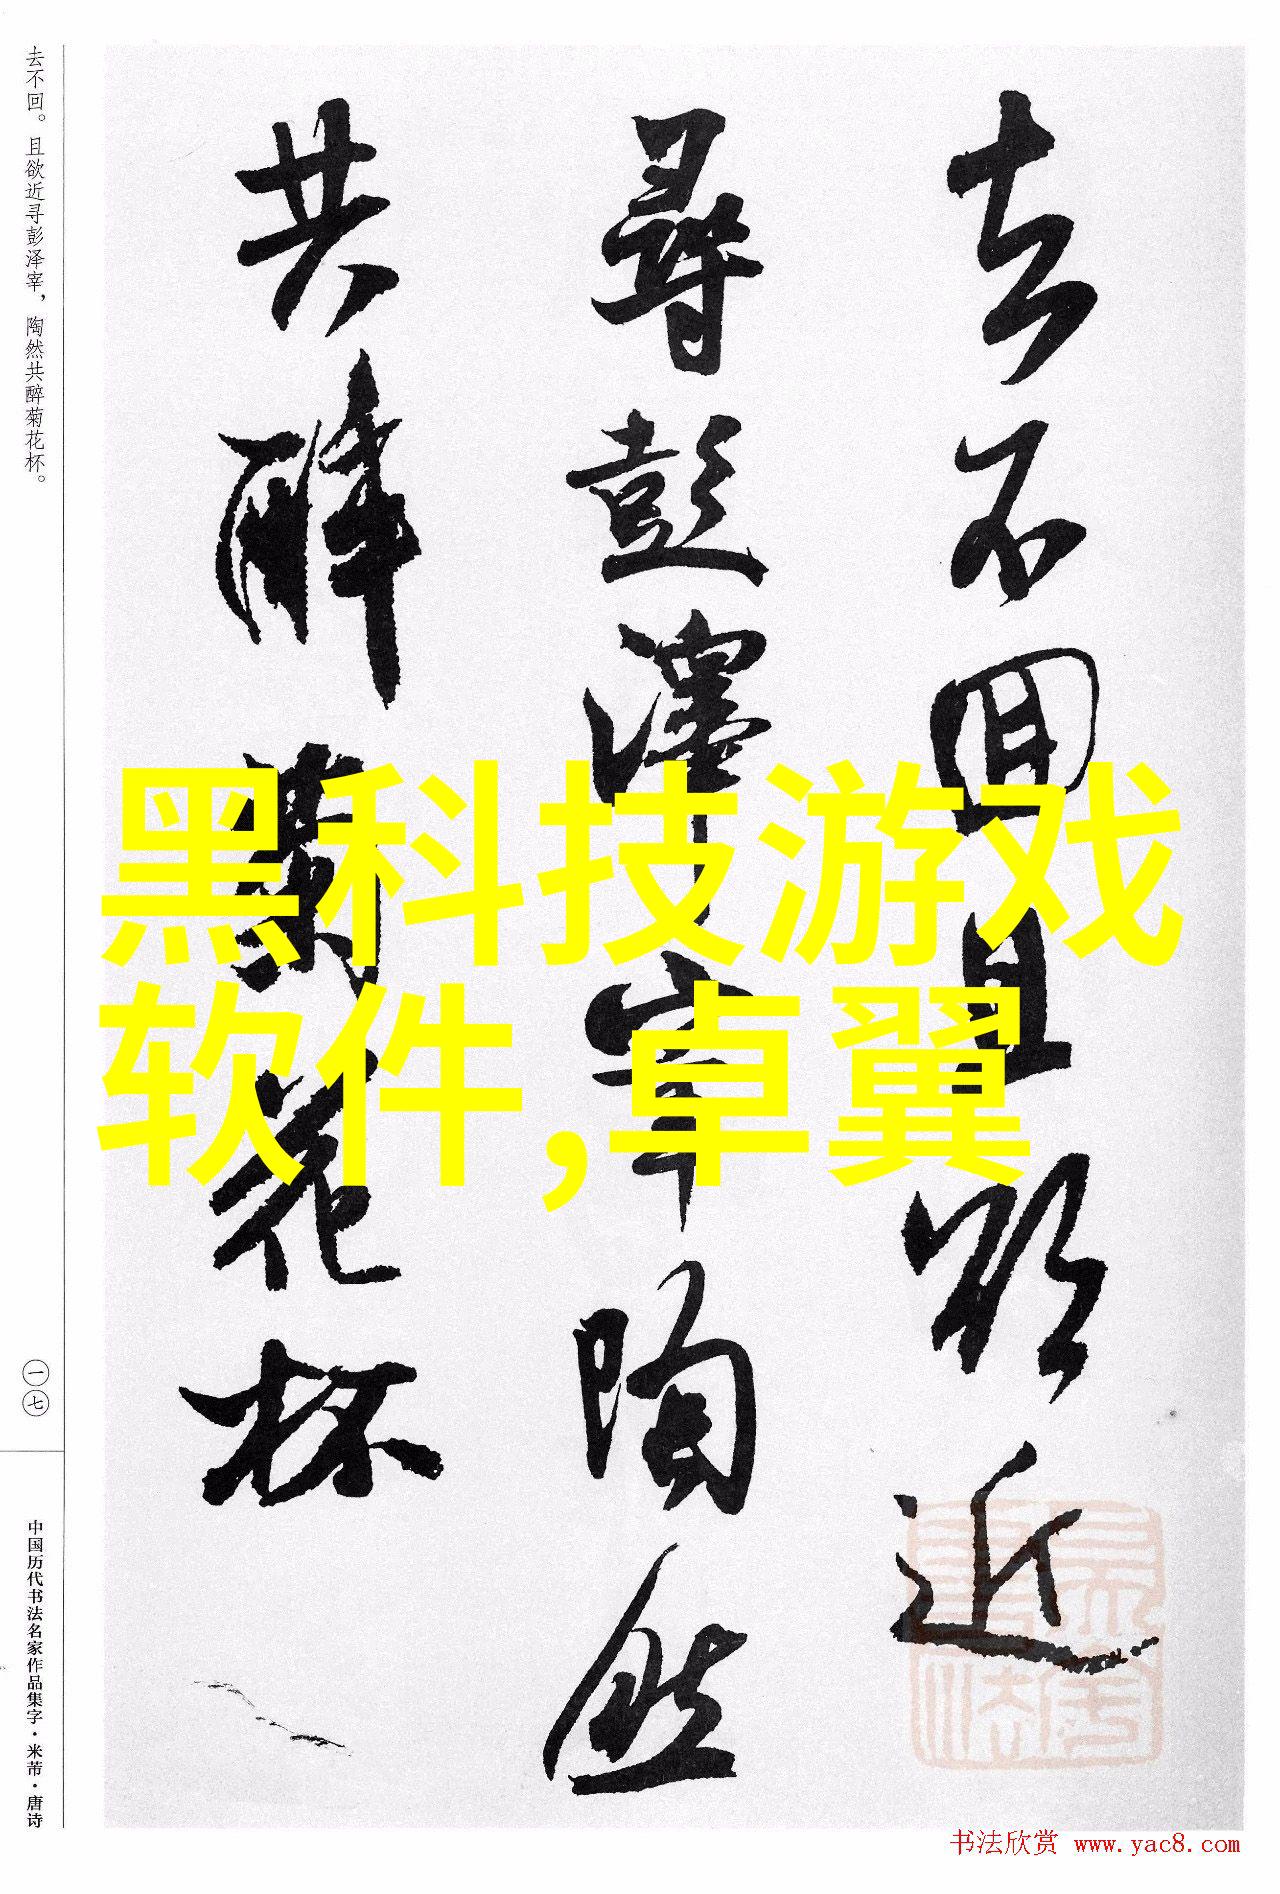 去不回且欲近
尋彭澤宰陶然
共醉菊花杯
去不回。且欲近寻彭泽宰，陶然共醉菊花杯。
一七
中国历代书法名家作品集字·米芾·唐诗
黑科技游戏
软件,卓翼
书法欣赏 www.yac8.com